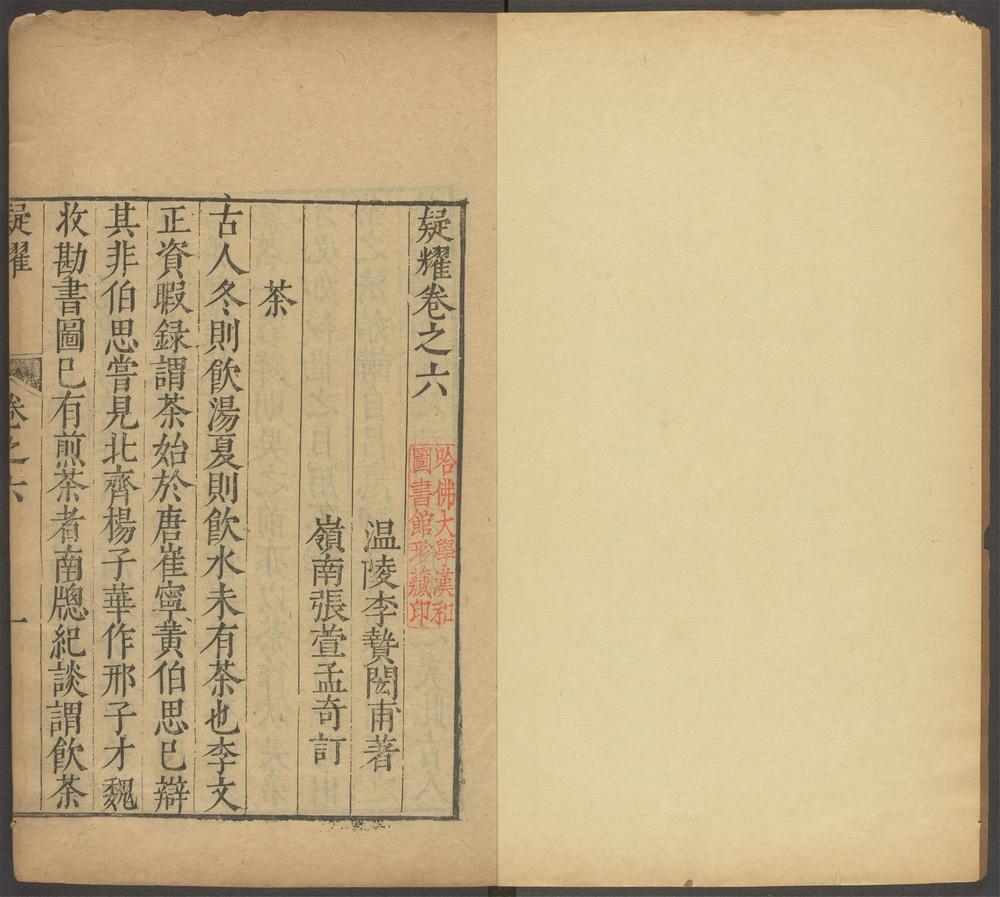 疑耀卷之六
哈佛大學漢和
圖書館珍藏印
温陵李贄閎甫著
嶺南張萱孟奇訂
茶
古人冬則飲湯夏則飲水未有茶也李文
正資暇録謂茶始於唐崔寧黄伯思巳辯
其非伯思嘗見北齊楊子華作邢子才魏
收勘書圖巳有煎茶者南牎紀談謂飲茶
疑耀
卷之六
一